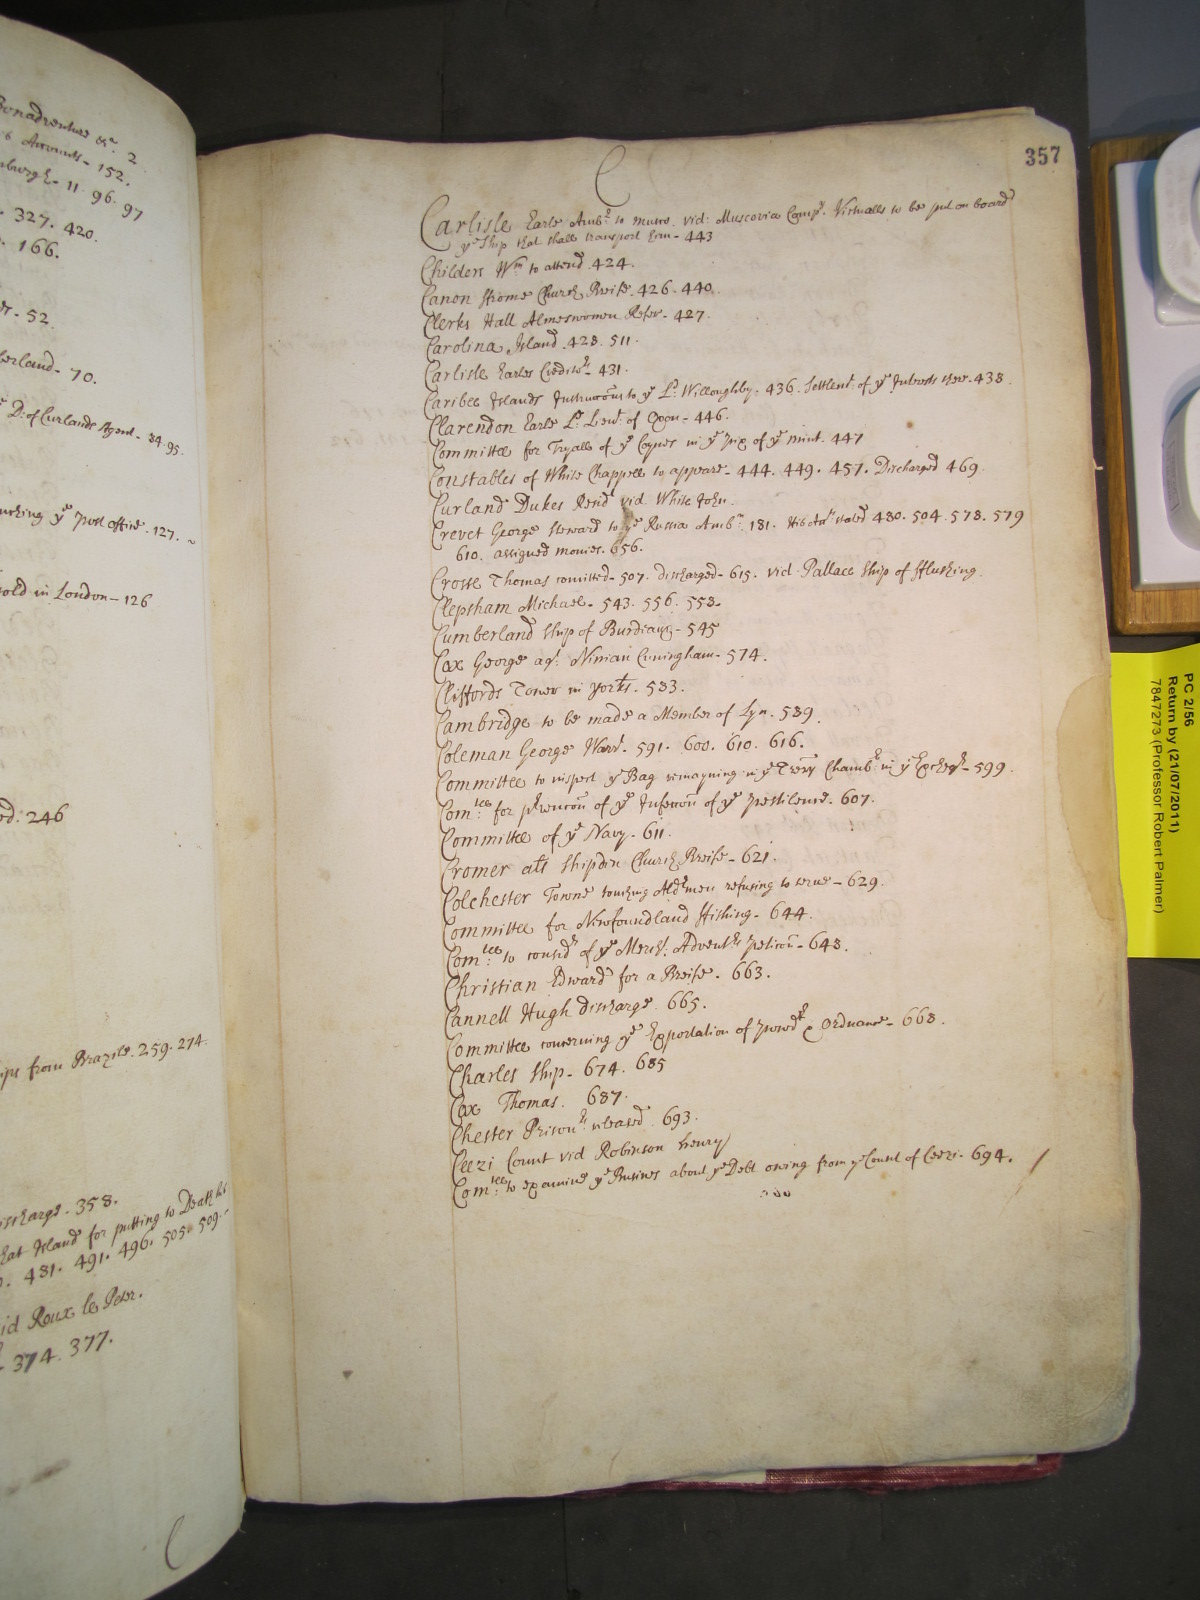 Bonadventure &c. 2
Accounts - 152.
11. 96. 97
327. 420.
166.
52
berland - 70.
D: of Curlands Agent - 94. 95.
ye Post office. 127.
sold in London - 126
246
ips from Brazile. 259. 274
ischarge. 358.
hat Island for putting to Death his
481. 491. 496. 505. 509.
id Roux le Peter.
374. 377.
C
357
C
Carlisle Earle Ambr. to Musco. vid: Muscovia Compa. Victualls to be put on board
ye Ship that shall transport him - 443
Childers Wm. to attend. 424.
Canon Frome Church Breife. 426. 440.
Clerks Hall Almeswomen Refer. - 427.
Carolina Island. 428. 511.
Carlisle Earles Creditrs. - 431.
Caribee Islands Instruccons to ye Ld. Willoughby. 436. Settlemt. of ye Interests there. 438.
Clarendon Earle Ld. Lieut. of Oxon - 446.
Committee for Tryall of ye Coynes in ye Pix of ye Mint. 447
Constables of White Chappell to appeare - 444. 449. 457. Discharged 469
Curland Dukes Resid. vid White John.
Crevet George Steward to ye Russia Ambr. 181. His Act. stated 480. 504. 578. 579
610. assigned monies. 656.
Crosse Thomas comitted - 507. discharged - 615. vid Pallace ship of fflushing.
Clepsham Michael. 543. 556. 558.
Cumberland ship of Burdeaux - 545
Cox George agt. Ninian Cuningham - 574.
Cliffords Tower in Yorke. 583.
Cambridge to be made a Member of Lyn. 589.
Coleman George Warrt. 591. 600. 610. 616.
Committee to inspect ye Bag remayning in ye Trery Chambr. in ye Exchqr. - 599.
Comtee: for prvencon of ye Infeccon of ye Pestilence. 607.
Committee of ye Navy. 611.
Cromer als Shipden Church Breife - 621.
Colchester Towne touching Aldrmen refusing to serve - 629.
Committee for Newfoundland ffishing. 644.
Comtee: to considr. of ye Mercht. Adventrs. peticon - 648.
Christian Edward for a Breife. 663.
Cannell Hugh discharge. 665.
Committee concerning ye Exportation of powdr. & Ordnance - 668.
Charles ship. 674. 685
Cox Thomas. 687.
Chester Prisonrs. released. 693.
Ceezi Count vid Robinson Henry
Comtee: to examine ye Busines about ye Debt owing from ye Count of Ceezi. 694.
PC 2/56
Return by (21/07/2011)
7847273 (Professor Robert Palmer)